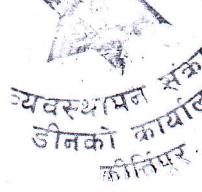 व्यवस्थापन संका
डीनको कार्याल
कीर्तिपुर